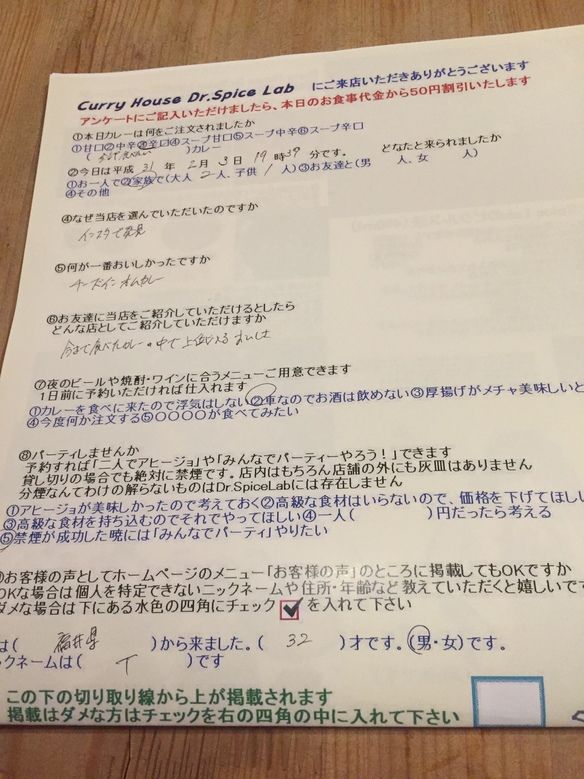 Curry House Dr.Spice Lab にご来店いただきありがとうございます
アンケートにご記入いただけましたら、本日のお食事代金から50円割引いたします
①本日カレーは何をご注文されましたか
①甘口②中辛③辛口④スープ甘口⑤スープ中辛⑥スープ辛口
( )カレー
②今日は平成 31 年 2月 3日 19時39分です。 どなたと来られましたか
①お一人で②家族で(大人 2人、子供 1人)③お友達と(男 人、女 人)
④その他
④なぜ当店を選んでいただいたのですか
インスタで発見
⑤何が一番おいしかったですか
チーズインオムカレー
⑥お友達に当店をご紹介していただけるとしたら
どんな店としてご紹介していただけますか
今まで食べたカレーの中で上位に入るおいしさ
⑦夜のビールや焼酎・ワインに合うメニューご用意できます
1日前に予約いただければ仕入れます
①カレーを食べに来たので浮気はしない②車なのでお酒は飲めない③厚揚げがメチャ美味しいと
④今度何か注文する⑤〇〇〇〇が食べてみたい
⑧パーティしませんか
予約すれば「二人でアヒージョ」や「みんなでパーティーやろう!」できます
貸し切りの場合でも絶対に禁煙です。店内はもちろん店舗の外にも灰皿はありません
分煙なんてわけの解らないものはDr.SpiceLabには存在しません
①アヒージョが美味しかったので考えておく②高級な食材はいらないので、価格を下げてほしい
③高級な食材を持ち込むのでそれでやってほしい④一人( )円だったら考える
⑤禁煙が成功した暁には「みんなでパーティ」やりたい
お客様の声としてホームページのメニュー「お客様の声」のところに掲載してもOKですか
OKな場合は個人を特定できないニックネームや住所・年齢など教えていただくと嬉しいです
ダメな場合は下にある水色の四角にチェック を入れて下さい
は( 福井県 )から来ました。( 32 )才です。(男・女)です。
ックネームは( T )です
この下の切り取り線から上が掲載されます
掲載はダメな方はチェックを右の四角の中に入れて下さい